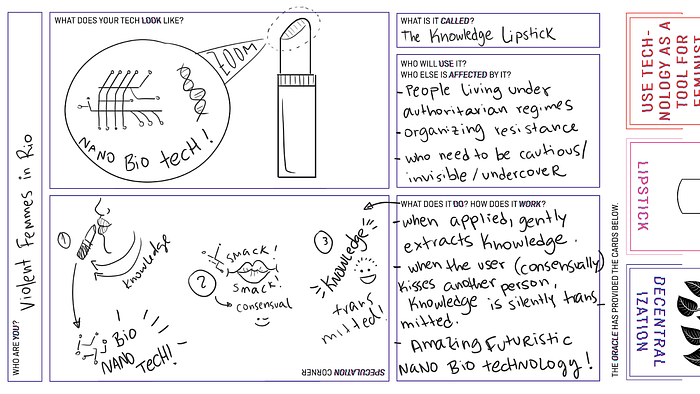 WHO ARE YOU?
Violent Femmes in Rio
WHAT DOES YOUR TECH LOOK LIKE?
ZOOM
NANO BIO tecH!
WHAT IS IT CALLED?
The Knowledge Lipstick
WHO WILL USE IT?
WHO ELSE IS AFFECTED BY IT?
- People living under
authoritarian regimes
- organizing resistance
- who need to be cautious/
invisible/undercoveR
1
knowledge
Bio
NANO
TecH!
2
smack!
smack!
consensual
3
Knowledge
trans
mitted!
SPECULATION CORNER
WHAT DOES IT DO? HOW DOES IT WORK?
- when applied, gently
extracts Knowledge.
- when the user (consensually)
kisses another person,
Knowledge is silently trans
mitted.
- Amazing Futuristic
NaNO BiO tecHNOLOGY!
THE ORACLE HAS PROVIDED THE CARDS BELOW.
USE TECH-
NOLOGY AS A
TOOL FOR
FEMINIST
LIPSTICK
DECENTRAL
IZATION